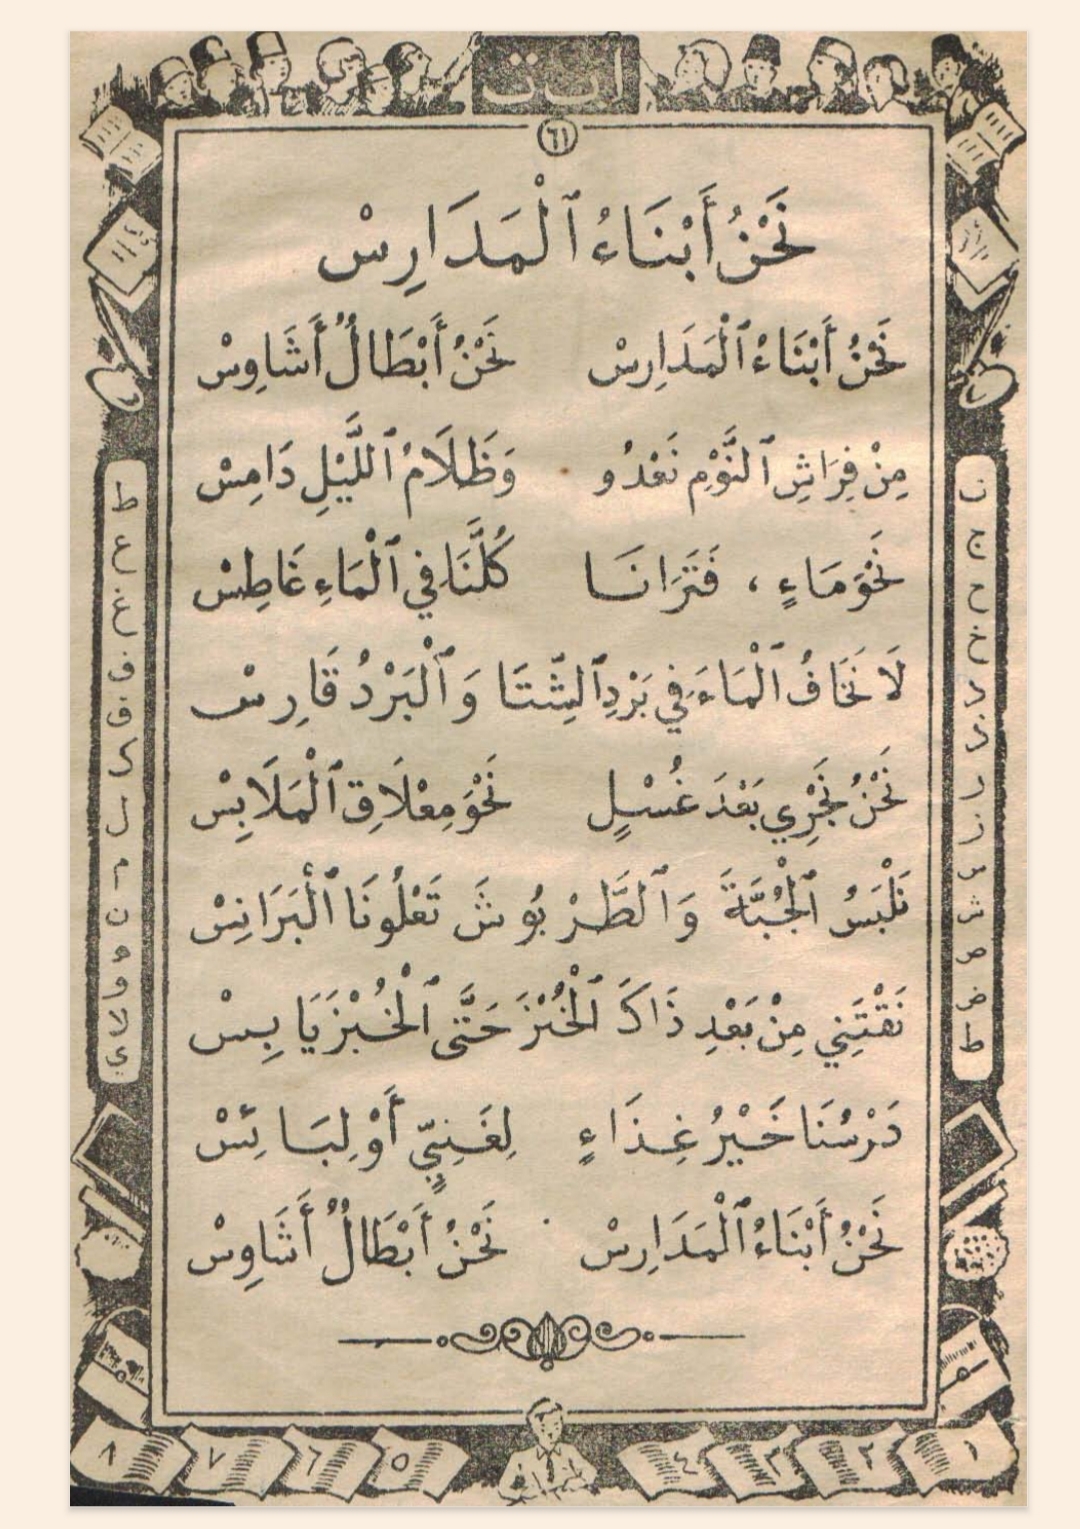 ا ب ت
٦١
نَحْنُ أَبْنَاءُ ٱلْمَدَارِسْ
نَحْنُ أَبْنَاءُ ٱلْمَدَارِسْ نَحْنُ أَبْطَالٌ أَشَاوِسْ
مِنْ فِرَاشِ ٱلنَّوْمِ نَعْدُو وَظَلَامُ ٱللَّيْلِ دَامِسْ
نَحْوَ مَاءٍ ، فَتَرَانَا كُلَّنَا فِي ٱلْمَاءِ غَاطِسْ
لَا نَخَافُ ٱلْمَاءَ فِي بَرْدِ ٱلشِّتَا وَٱلْبَرْدُ قَارِسْ
نَحْنُ نَجْرِي بَعْدَ غُسْلٍ نَحْوَ مِعْلَاقِ ٱلْمَلَابِسْ
نَلْبَسُ ٱلْجُبَّةَ وَٱلطَّرْبُوشَ تَعْلُونَا ٱلْبَرَانِسْ
نَقْتَنِي مِنْ بَعْدِ ذَاكَ ٱلْخُبْزَ حَتَّى ٱلْخُبْزَ يَابِسْ
دَرْسُنَا خَيْرُ غِذَاءٍ لِغَنِيٍّ أَوْ لِبَائِسْ
نَحْنُ أَبْنَاءُ ٱلْمَدَارِسْ نَحْنُ أَبْطَالٌ أَشَاوِسْ
ج
ح
خ
د
ذ
ر
ز
س
ش
ص
ض
ط
ط
ع
غ
ف
ق
ك
ل
م
ن
ه
و
لا
ي
١ ٢ ٣ ٤ ٥ ٦ ٧ ٨